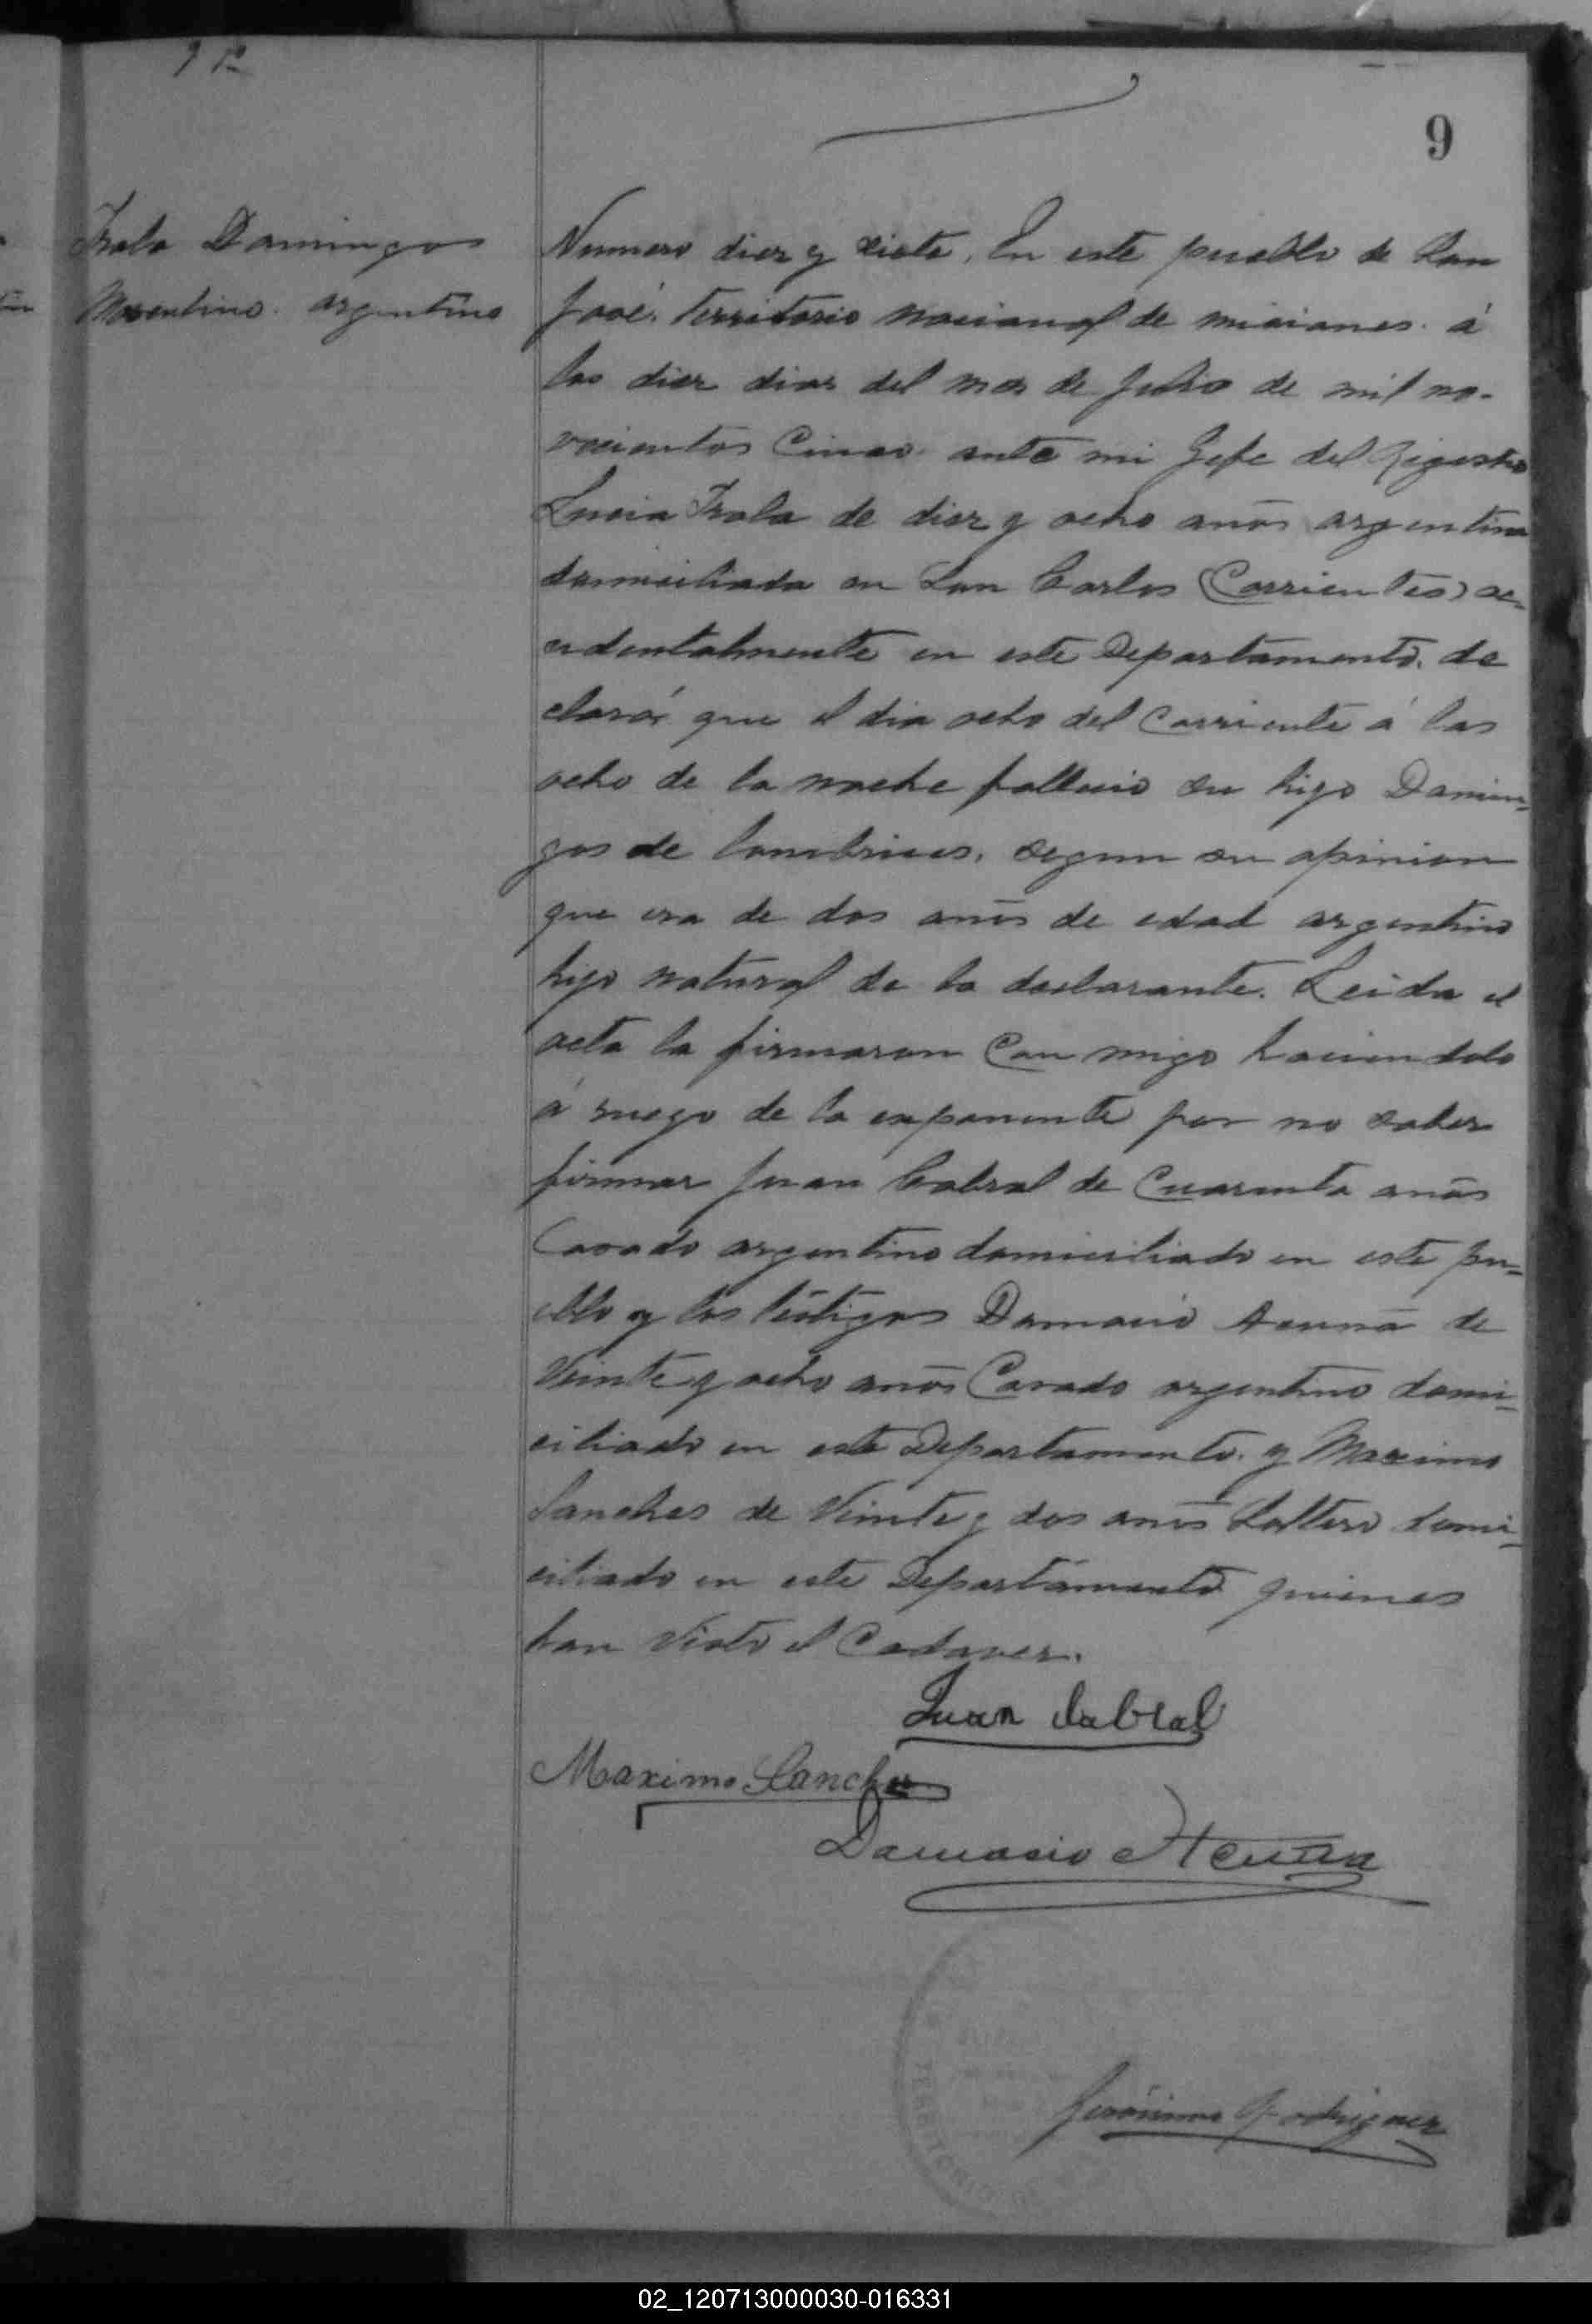 9
Irala Domingos
argentino
Numero diez y siete. En este pueblo de San
José. territorio nacional de misiones. á
los diez dias del mes de Julio de mil no-
vecientos Cinco. ante mi Jefe del Registro
Lucia Irala de diez y ocho anōs argentina
domiciliada en San Carlos (Corrientes) ac=
cidentalmente en este Departamento. de
claró: que el dia ocho del Corriente á las
ocho de la noche fallecio su hijo Domin=
gos de lombrices. segun su opinion
que era de dos anōs de edad argentino
hijo natural de la declarante. Leida el
acta la firmaron Con migo haciendolo
á ruego de la exponente por no saber
firmar Juan Cabral de Cuarenta anōs
Casado argentino domiciliado en este pu=
eblo y los testigos Damacio Acunā de
Veinte y ocho anōs Casado argentino domi=
ciliado en este Departamento. y Maximo
Sanches de Veinte y dos anōs Soltero domi=
ciliado en este Departamento quienes
han Visto el Cadaver.
Juan Cabral
Maximo Sanches
Damacio Acuña
Gerónimo Rodriguez
02_120713000030-016331